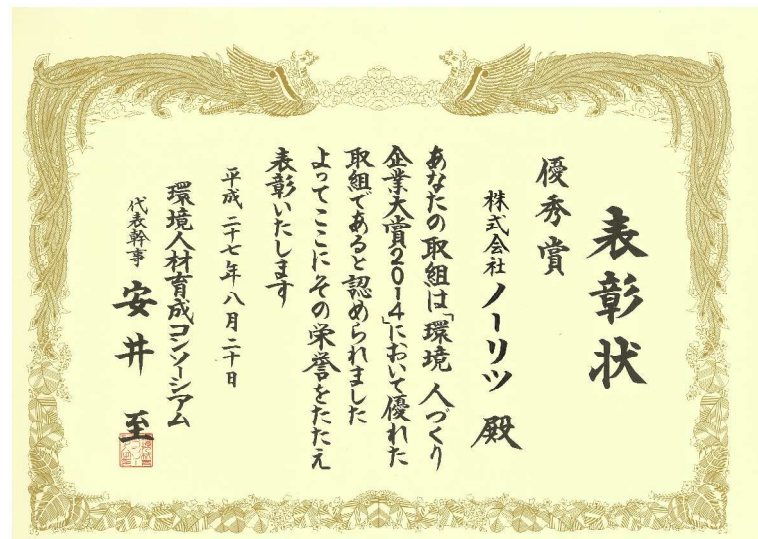 表彰状
優秀賞
株式会社ノーリツ 殿
あなたの取組は「環境 人づくり
企業大賞2014」において優れた
取組であると認められました
よってここにその栄誉をたたえ
表彰いたします
平成二十七年八月二十日
環境人材育成コンソーシアム
代表幹事 安井 至